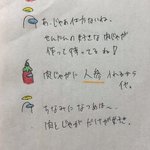 あ、じゃあ仕方ないね。
せんたんの好きな肉じゃが
作って待ってるね!
肉じゃがに人参入れるから
な。
ちなみになつみは〜、
肉とじゃがだけが好き。